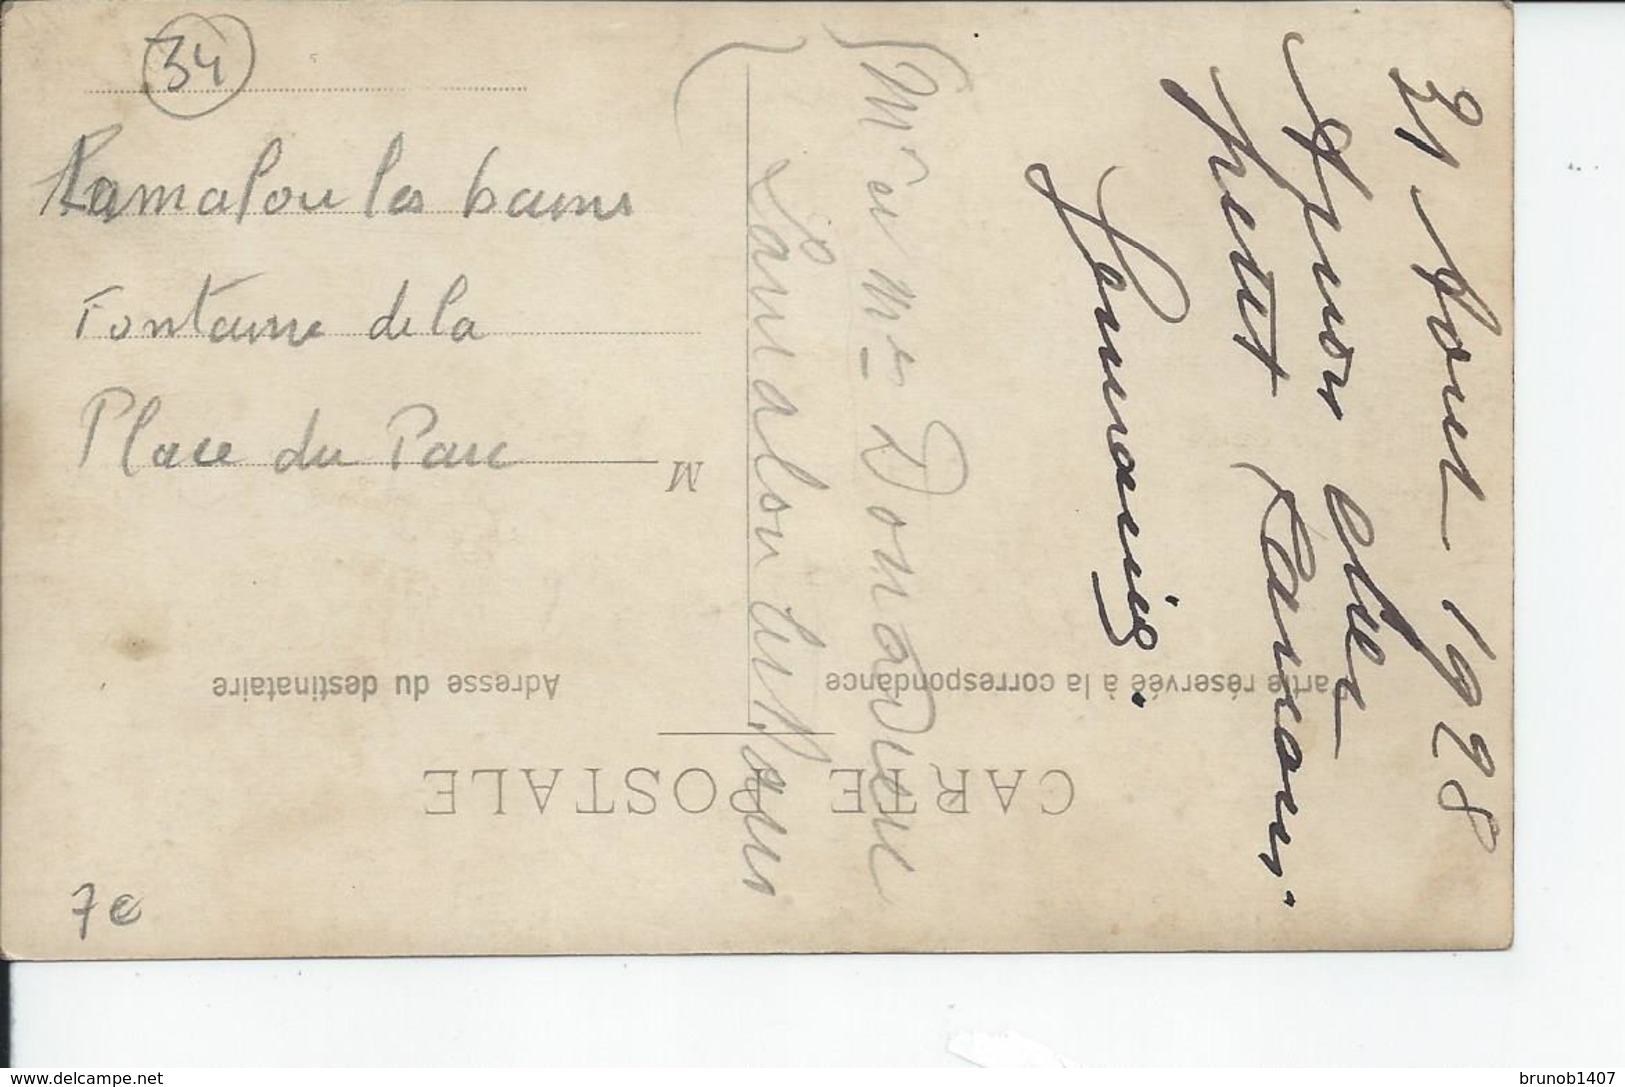 34
Lamalou les bains
Fontaine de la
Place du Parc
7€
31 Aout 1928
petit
Germaine.
Mr et Mme Donnadieu
Lamalou les Bains
M
Adresse du destinataire
Partie réservée à la correspondance
CARTE POSTALE
www.delcampe.net
brunob1407